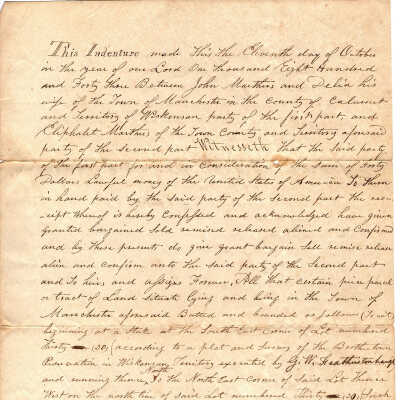 This Indenture made This the Eleventh day of October
in the year of our Lord One thousand Eight Hundred
and Forty three Between John Mathers and Delia his
wife of the Town of Manchester in the County of Calumet
and Territory of Wiskonsan party of the first part and
Eliphalet Mathers of the Town County and Territory aforesaid
party of the second part Witnesseth that the said party
of the first part for and in Consideration of the Sum of Forty
Dollars Lawful money of the United States of America To them
in hand paid by the Said party of the Second part the re-
ceipt whereof is hereby Confessed and acknowledged have given
granted bargained Sold remised released aliened and Confirmed
and by these presents do give grant bargain Sell remise release
alien and Confirm unto the Said party of the Second part
and To his and assigns Forever, All that Certain piece parcel
or tract of Land Situate lying and being in the Town of
Manchester aforesaid Butted and bounded as follows (to wit)
beginning at a Stake at the South East Corner of Lot numbered
Thirty (30) according to a plat and Survey of the Brothertown
Reservation in Wiskonsan Territory executed by G. W. Featherstonhaugh
and running thence North To the North East Corner of Said Lot thence
West on the north line of Said Lot numbered Thirty (30)